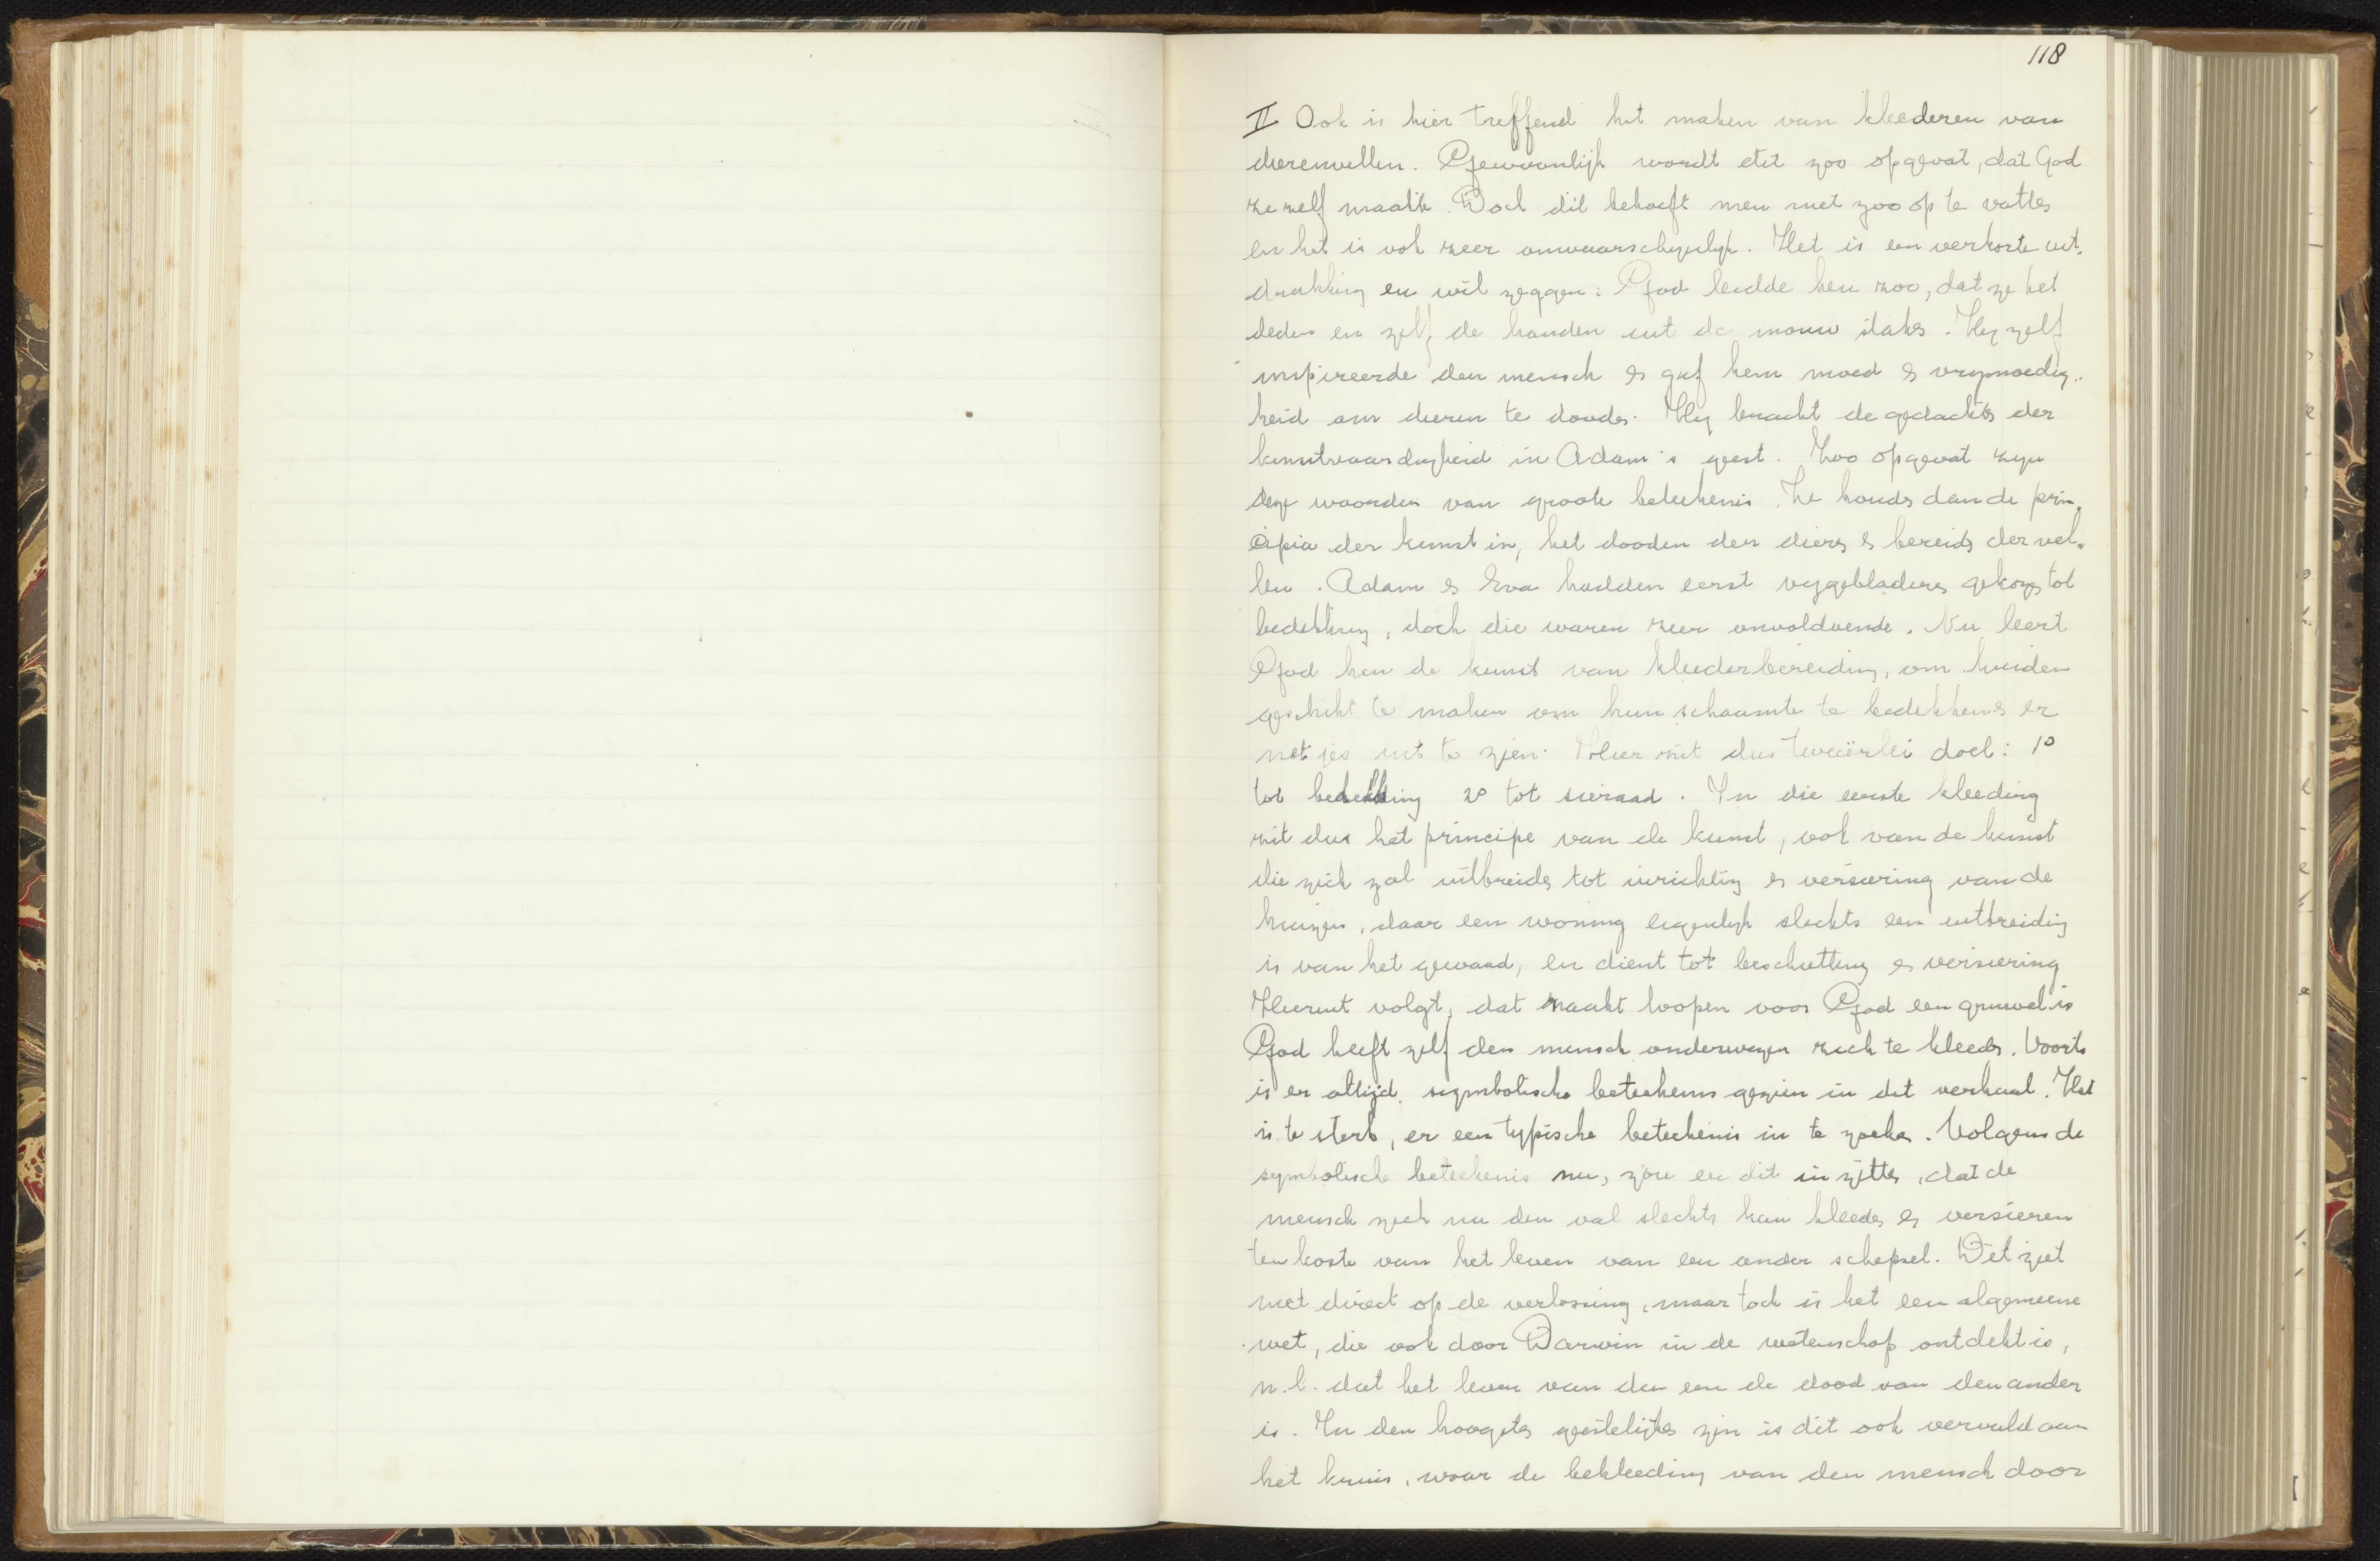 118
II Ook is hier treffend het maken van kleederen van
dierenvellen. Gewoonlijk wordt dit zoo opgevat, dat God
ze zelf maakte. Doch dit behoeft men niet zoo op te vatten
en het is ook zeer onwaarschijnlijk. Het is een verkorte uit-
drukking en wil zeggen: God leidde hen zoo, dat ze het
deden en zelf de handen uit de mouw staken. Hij zelf
inspireerde den mensch en gaf hem moed en vrijmoedig-
heid om dieren te dooden. Hij bracht de gedachten der
kunstvaardigheid in Adam's geest. Zoo opgevat zijn
deze woorden van groote beteekenis. Ze houden dan de prin-
cipia der kunst in, het dooden der dieren en bereiden der vel-
len. Adam en Eva hadden eerst vijgebladeren gekozen tot
bedekking, doch die waren zeer onvoldoende. Nu leert
God hen de kunst van kleederbereiding, om huiden
geschikt te maken om hun schaamte te bedekken en er
netjes uit te zien. Hier zit dus tweeërlei doel: 1°
tot bedekking 2° tot sieraad. In die eerste kleeding
zit dus het principe van de kunst, ook van de kunst
die zich zal uitbreiden tot inrichting en versiering van de
huizen, daar een woning eigenlijk slechts een uitbreiding
is van het gewaad, en dient tot beschutting en versiering
Hieruit volgt, dat naakt loopen voor God een gruwel is
God heeft zelf den mensch onderwezen zich te kleeden. Voorts
is er altijd symbolische beteekenis gezien in dit verhaal. Het
is te sterk, er een typische beteekenis in te zoeken. Volgens de
symbolische beteekenis nu, zou er dit in zitten, dat de
mensch zich na den val slechts kan kleeden en versieren
ten koste van het leven van een ander schepsel. Dit ziet
niet direct op de verlossing, maar toch is het een algemeene
wet, die ook door Darwin in de wetenschap ontdekt is,
n.l. dat het leven van den een de dood van den ander
is. In den hoogsten geestelijken zin is dit ook vervuld aan
het kruis, waar de bekleeding van den mensch door